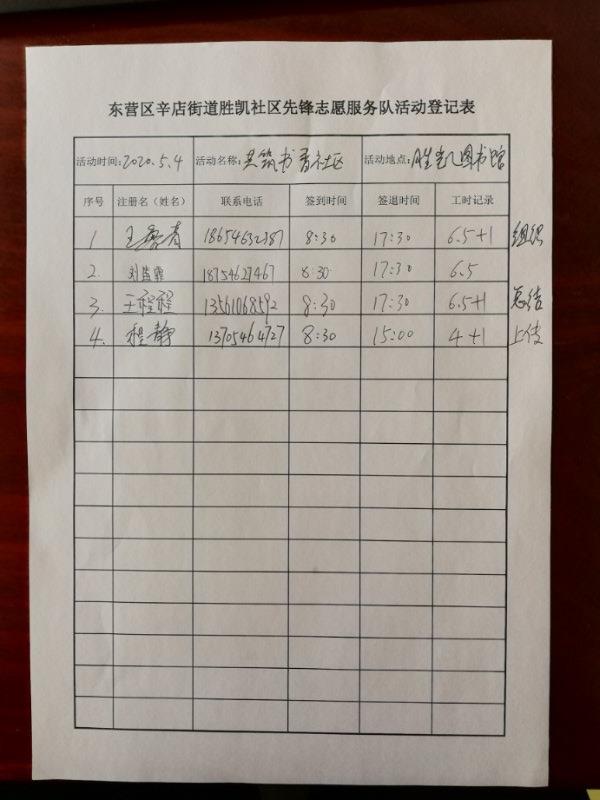 东营区辛店街道胜凯社区先锋志愿服务队活动登记表
活动时间:2020.5.4 活动名称:共筑书香社区 活动地点:胜凯图书馆
序号 注册名(姓名) 联系电话 签到时间 签退时间 工时记录
1 王 青 18654632387 8:30 17:30 6.5+1 组织
2. 刘 霞 18754627467 8:30 17:30 6.5
3. 王程程 13561068592 8:30 17:30 6.5+1 总结
4. 程静 13705464727 8:30 15:00 4+1 上传